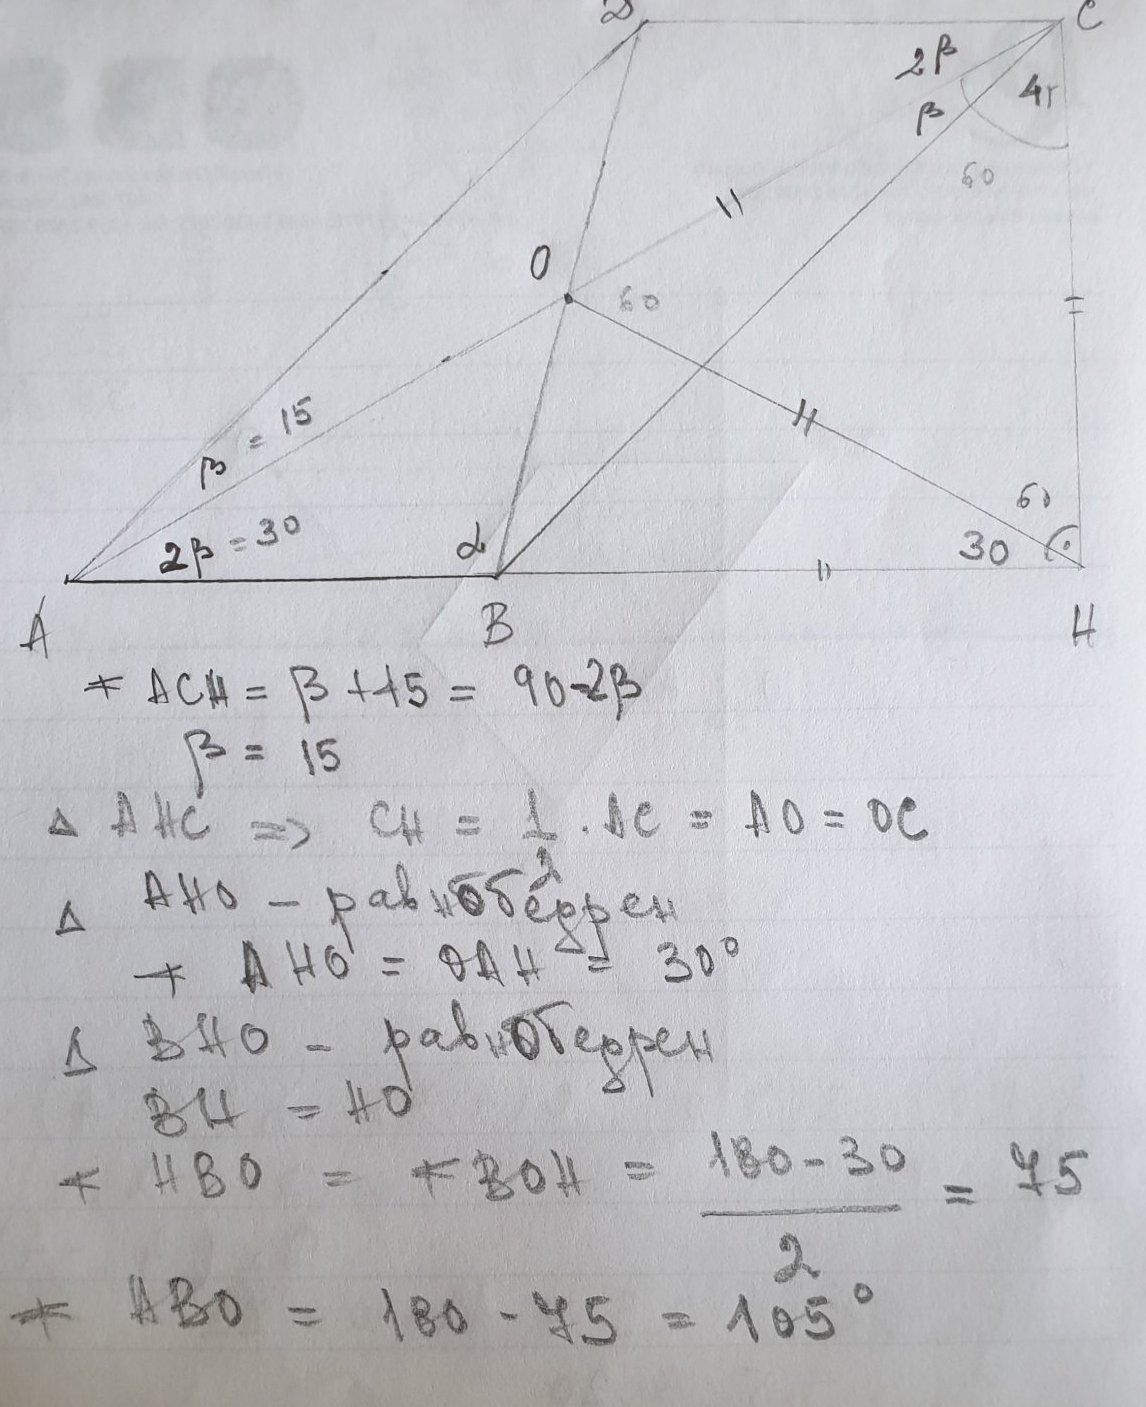 D
C
2β
4r
β
60
O
60
β = 15
60
2β = 30
α
30
A
B
H
∢ ACH = β + 45 = 90 - 2β
β = 15
Δ AHC => CH = 1/2 . AC = AO = OC
Δ AHO - равнобедрен
∢ AHO = OAH = 30°
Δ BHO - равнобедрен
BH = HO
∢ HBO = ∢ BOH = 180 - 30 / 2 = 75
∢ ABO = 180 - 75 = 105°